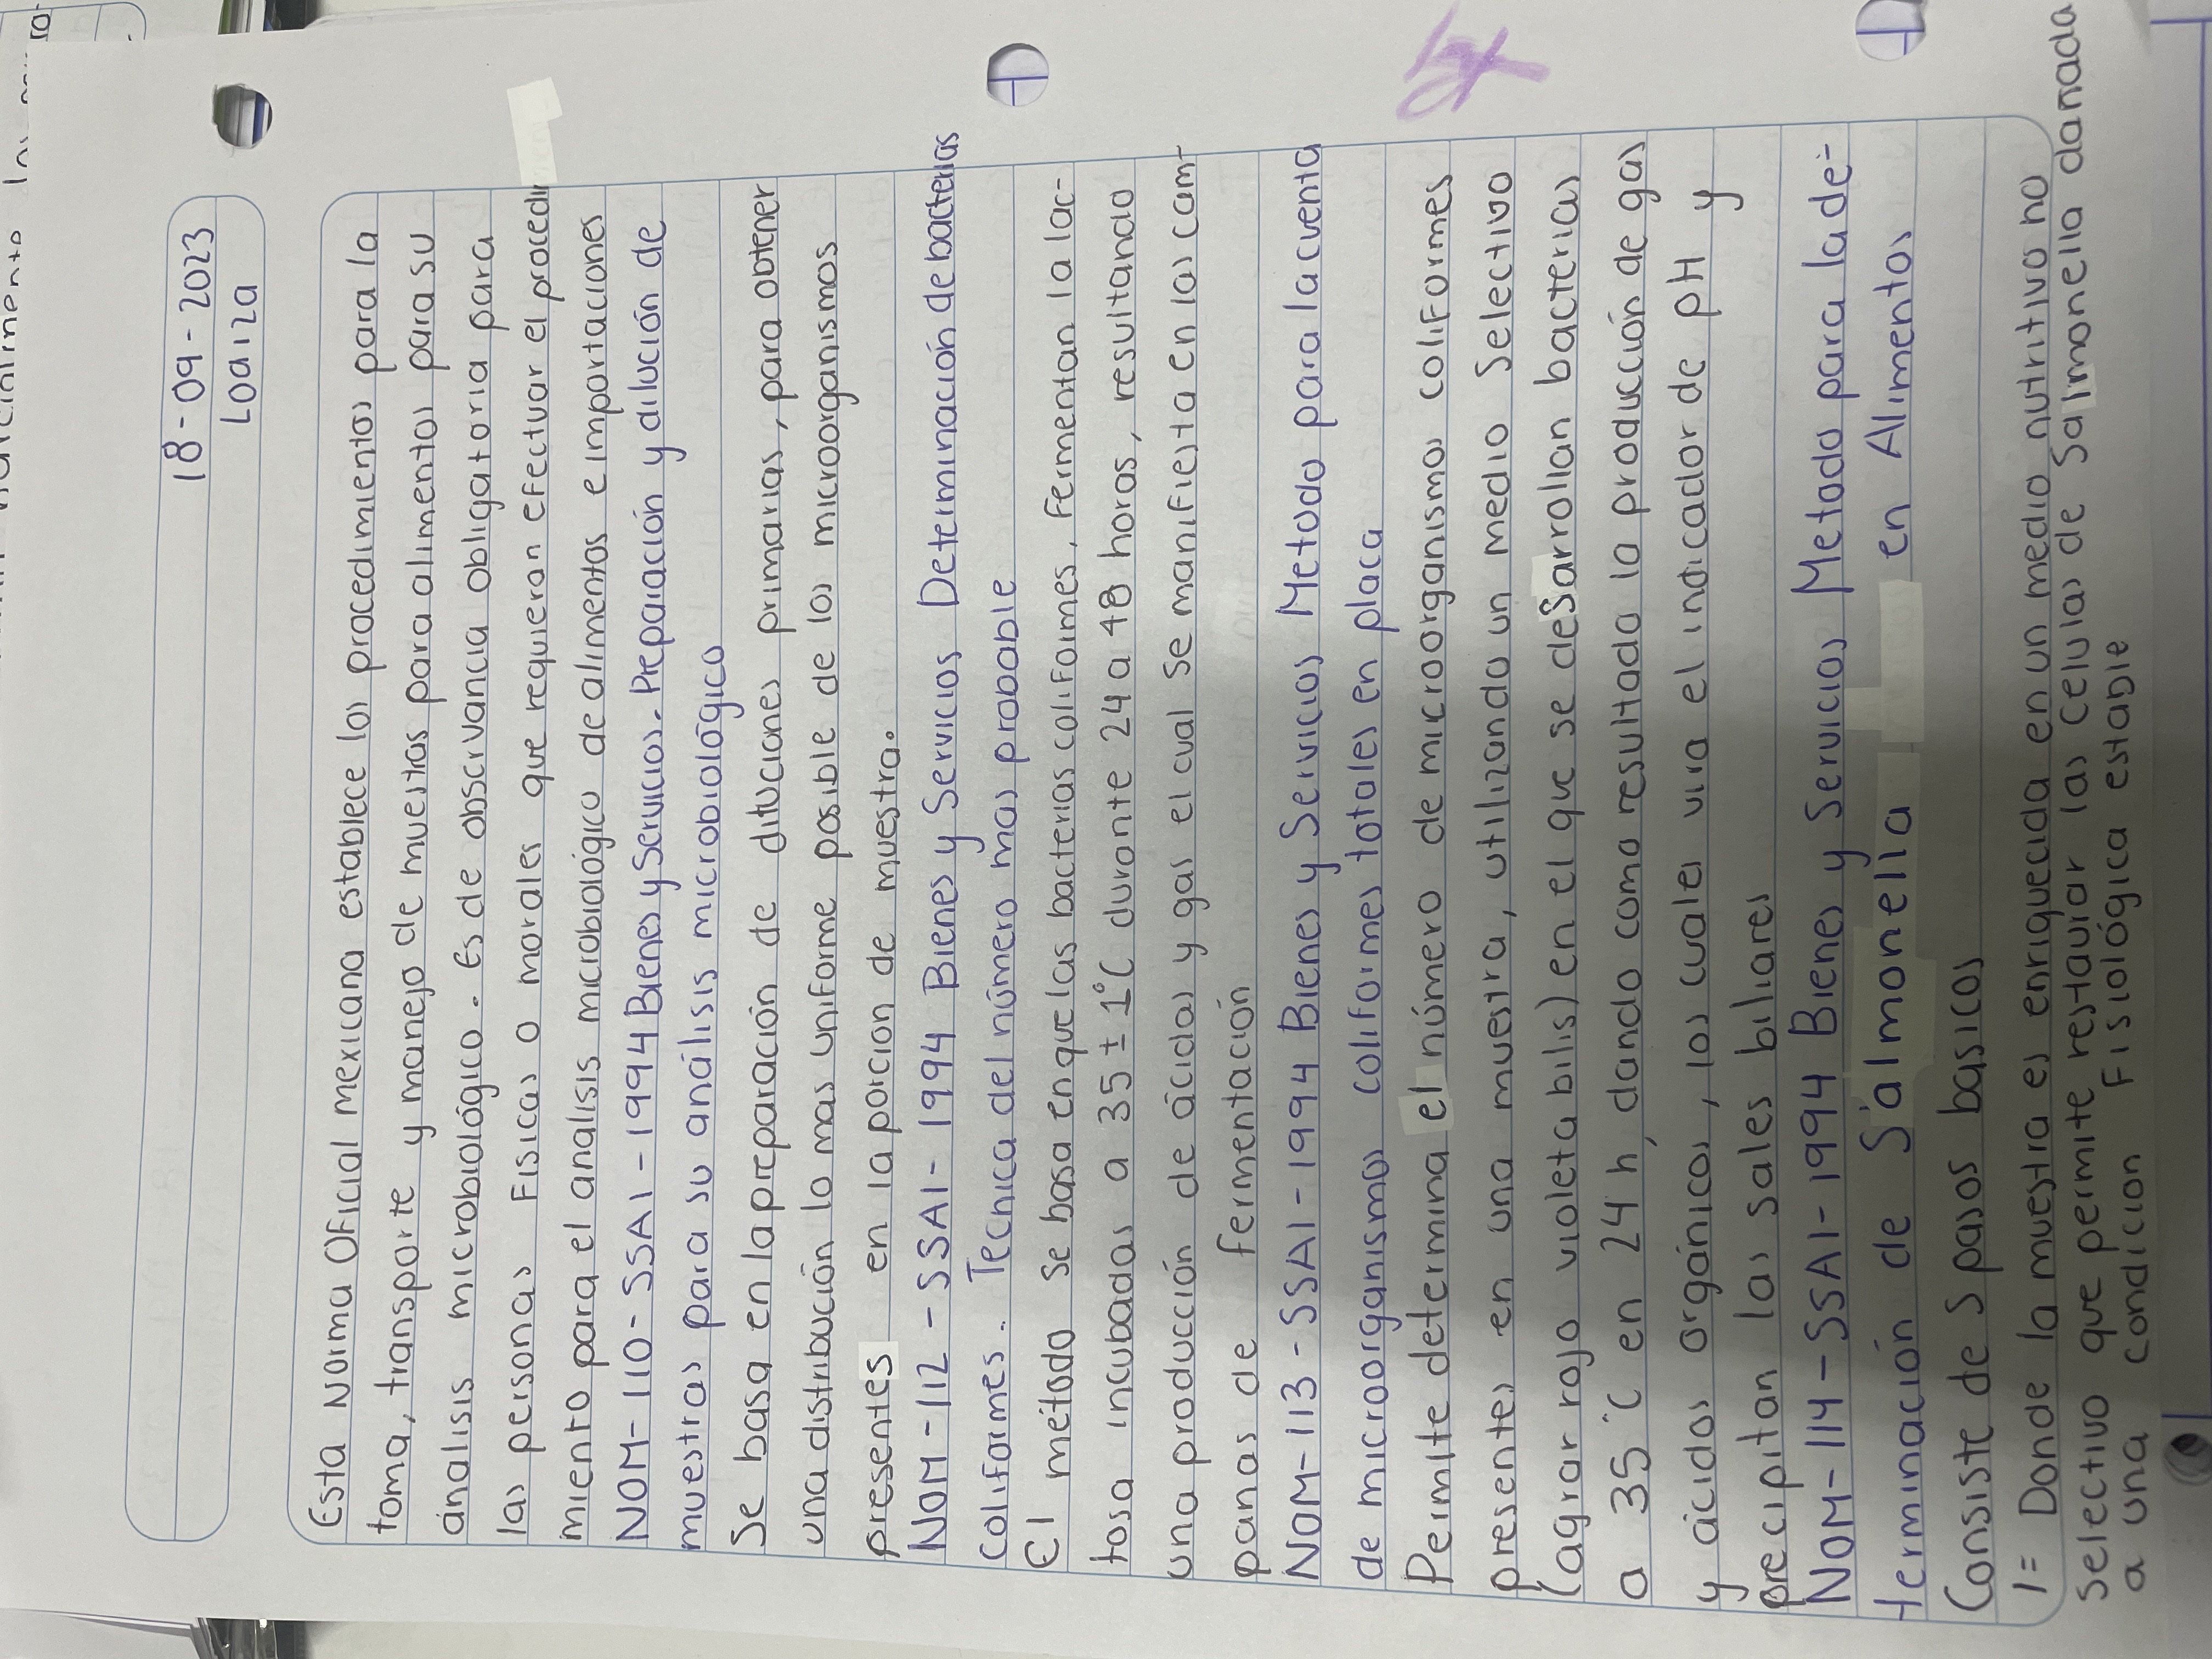 18-09-2023
Loaiza
Esta Norma Oficial mexicana establece los procedimientos para la
toma, transporte y manejo de muestras para alimentos para su
ánalisis microbiológico. Es de observancia obligatoria para
las personas Fisicas o morales que requieran efectuar el procedi
miento para el analisis microbiológico de alimentos e importaciones
NOM-110-SSA1-1994 Bienes y Servicios. Preparación y dilución de
muestras para su análisis microbiológico
Se basa en la preparación de diluciones primarias, para obtener
una distribución lo mas uniforme posible de los microorganismos
presentes en la porcion de muestra.
NOM-112-SSA1-1994 Bienes y Servicios Determinación de bacterias
Coliformes. Tecnica del número mas probable
El método se basa en que las bacterias coliformes, fermentan la lac-
tosa incubadas a 35 ± 1°C durante 24 a 48 horas, resultando
una producción de ácidos y gas el cual se manifiesta en las cam-
panas de fermentación
NOM-113-SSA1-1994 Bienes y Servicios Metodo para la cuenta
de microorganismos coliformes totales en placa
Permite determina el número de microorganismos coliformes
presentes en una muestra, utilizando un medio Selectivo
(agrar rojo violeta bilis) en el que se deSarrollan bacterias
a 35°C en 24 h, dando como resultado la producción de gas
y ácidos orgánicos, los cuales vira el indicador de pH y
precipitan las sales biliares
NOM-114-SSA1-1994 Bienes y Servicios Metodo para la de-
terminación de Salmonella en Alimentos
Consiste de 5 pasos basicos
1= Donde la muestra es enriquecida en un medio nutritivo no
selectivo que permite restaurar las celulas de Salmonella danada
a una condicion Fisiológica estable